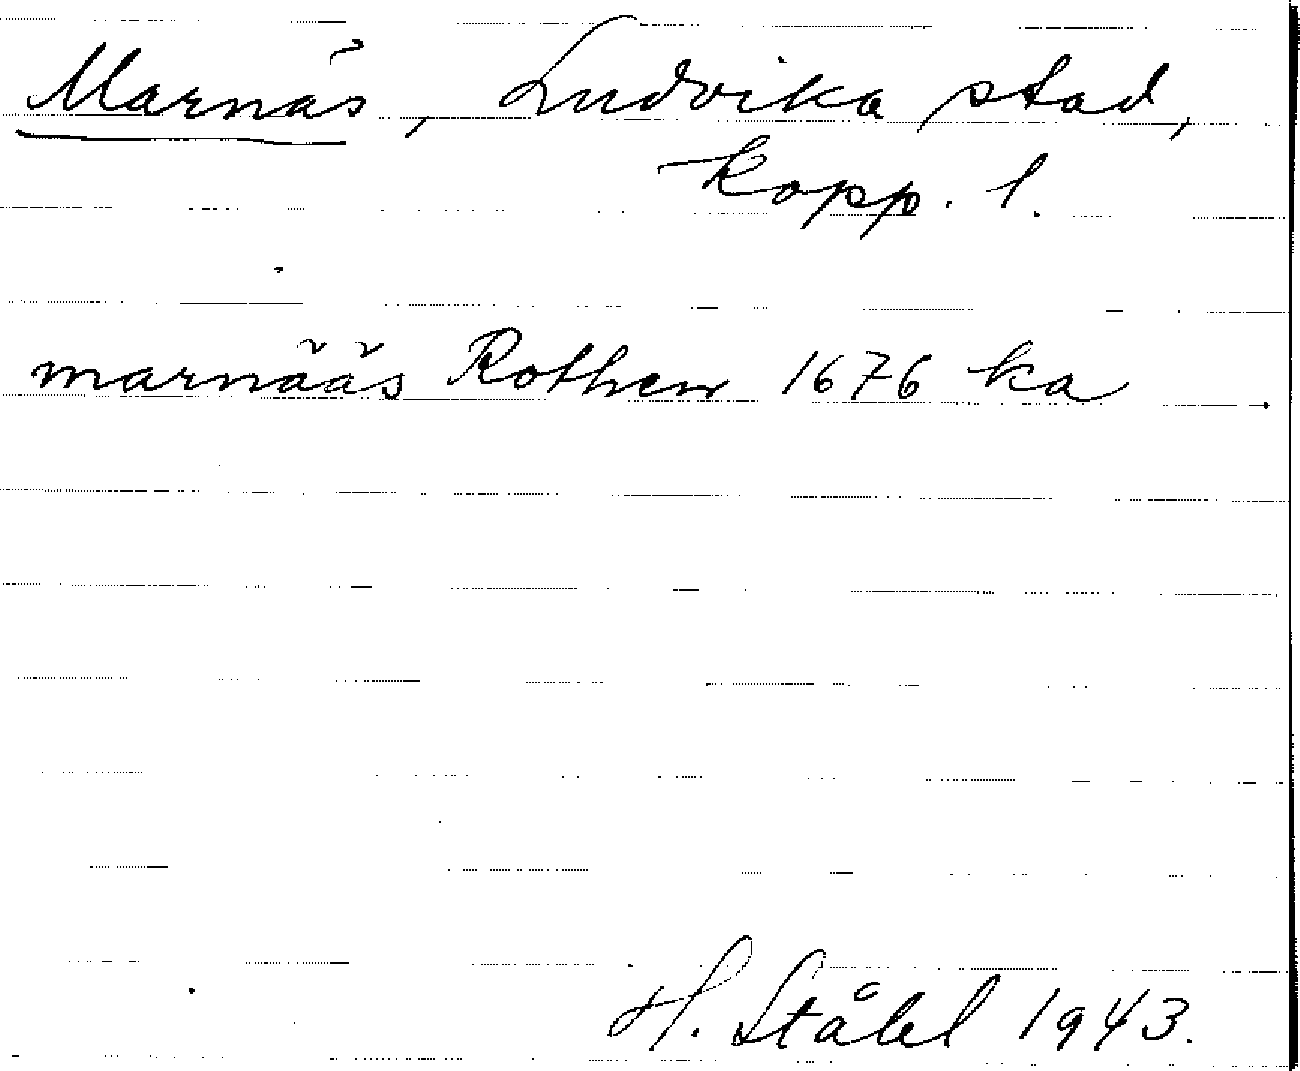 Marnäs, Ludvika stad,
Kopp. l.
marnääs Rothen 1676 ka
H. Ståhl 1943.